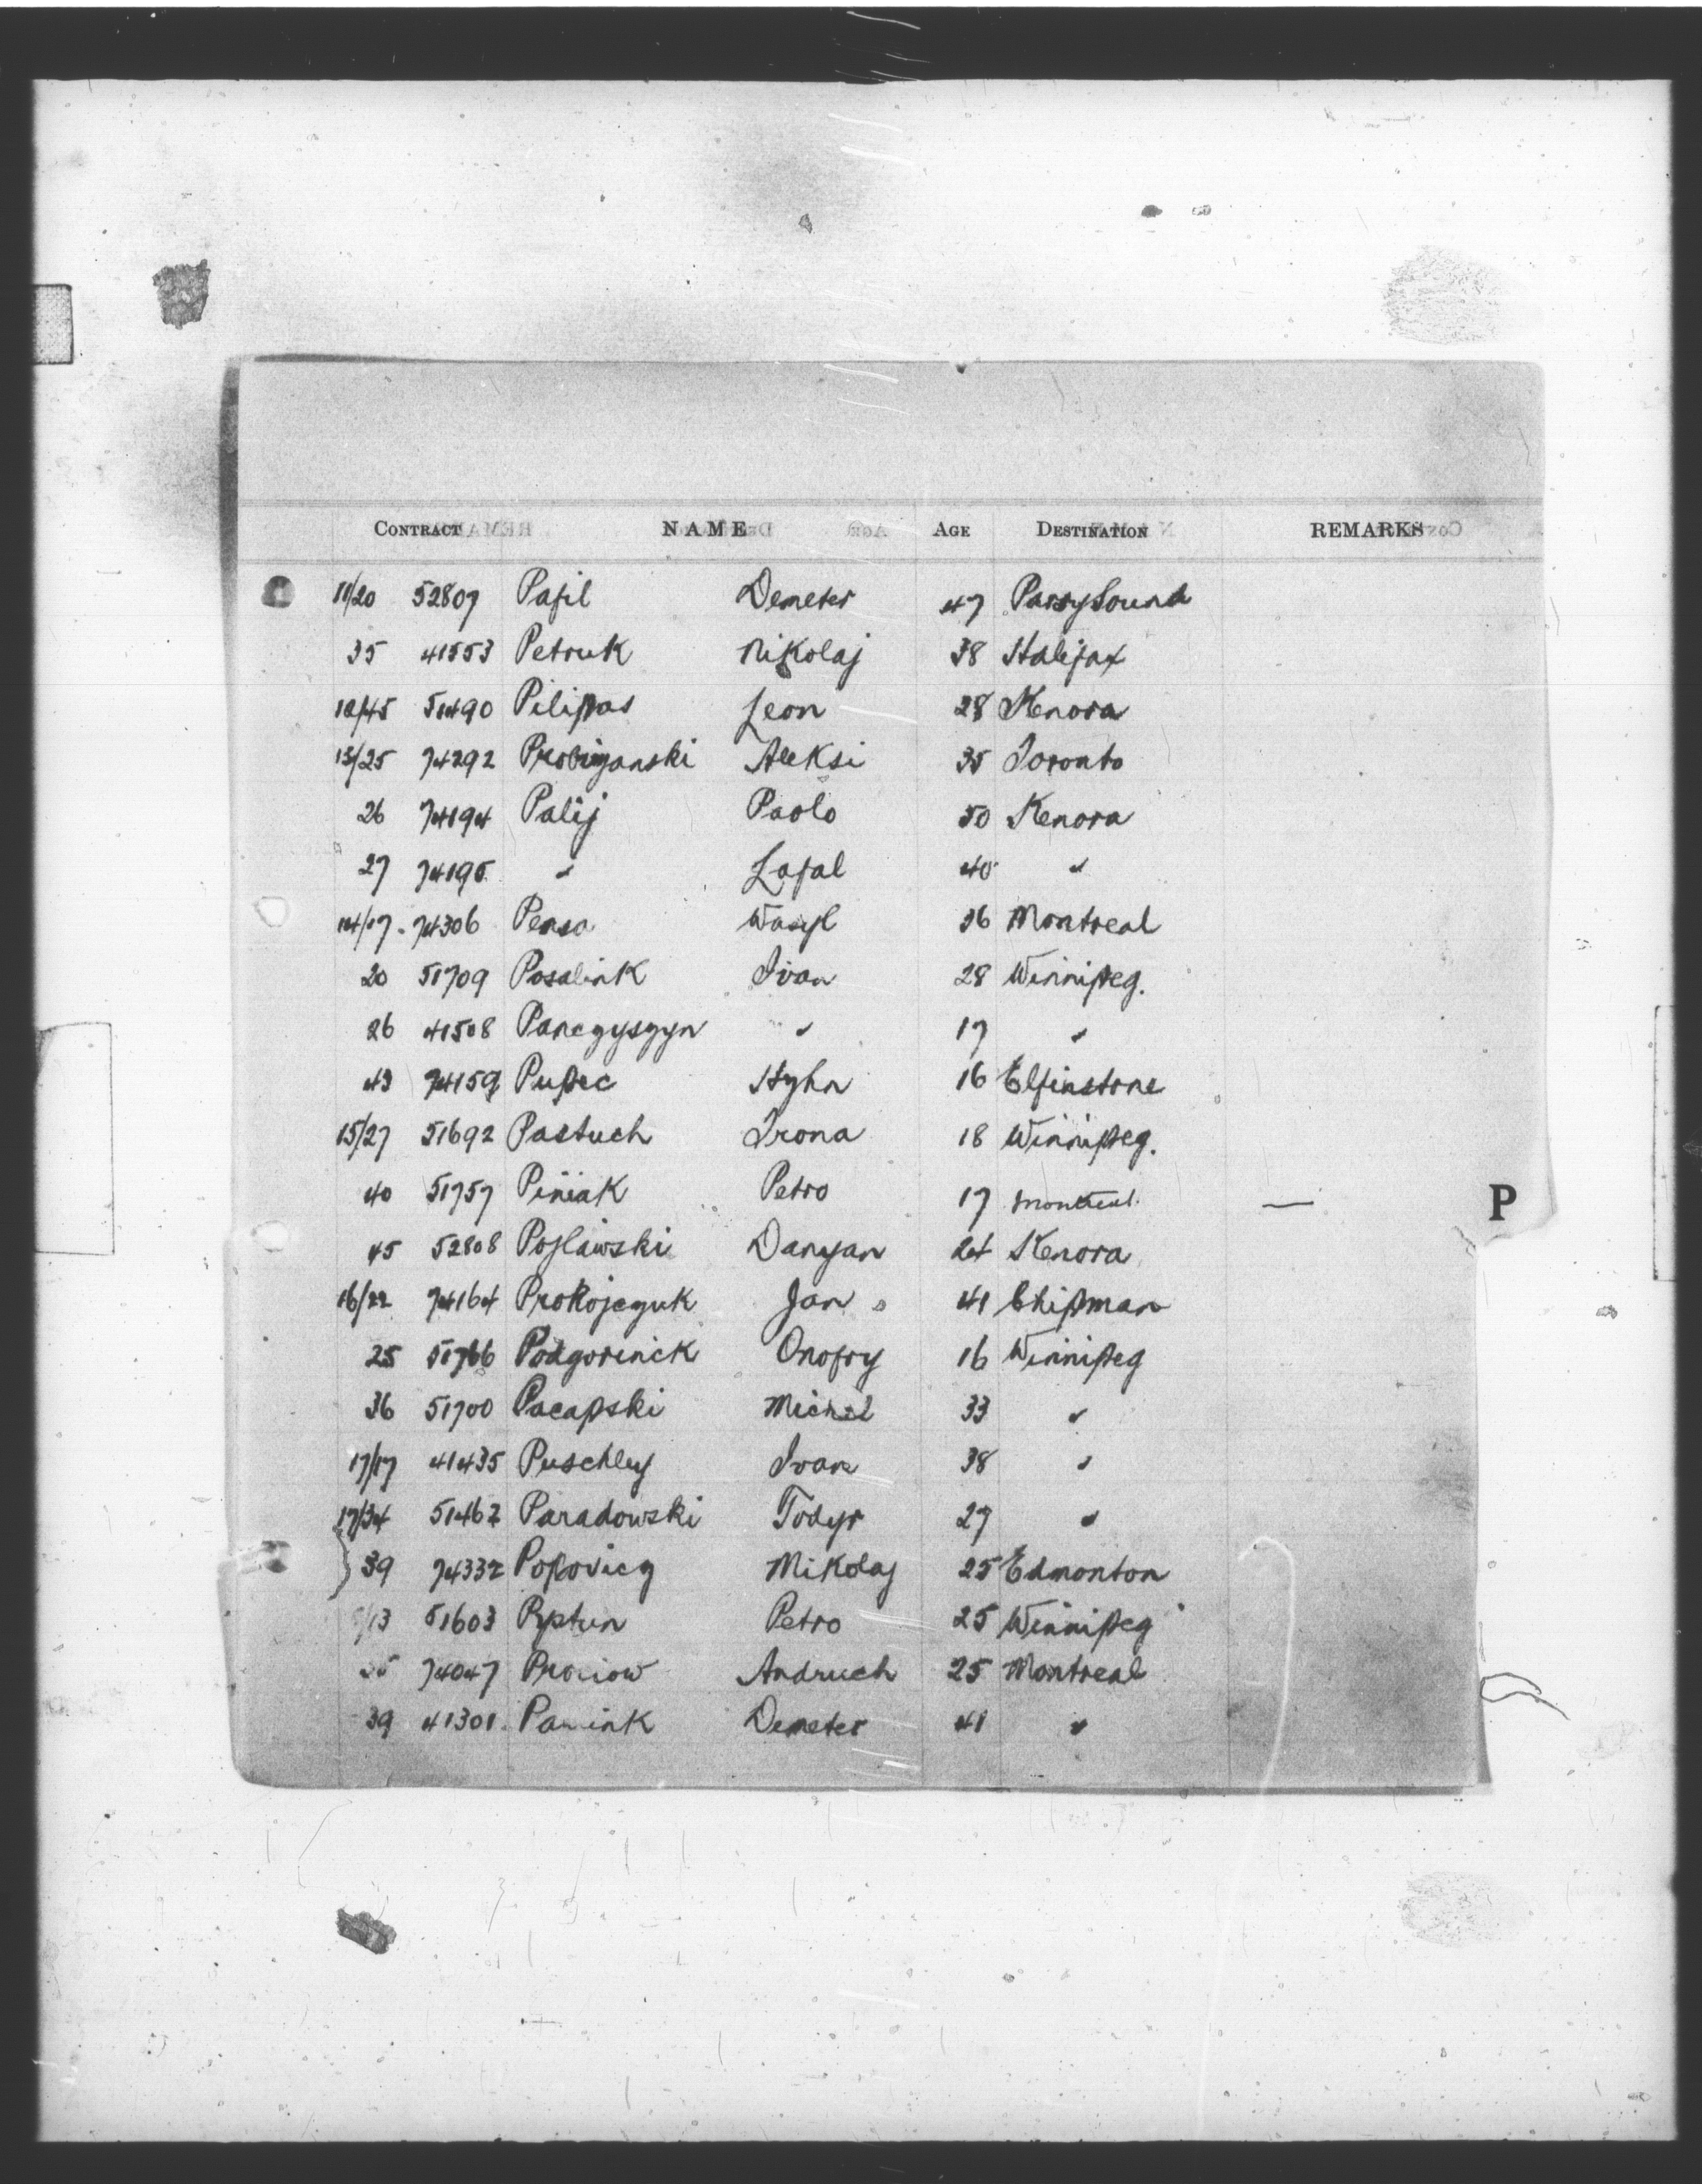 CONTRACT NAME AGE DESTINATION REMARKS
11/20 52807 Pafil Demeter 47 ParrySound
35 41553 Petruk Nikolaj 38 Halifax
12/45 51490 Pilipas Leon 28 Kenora
13/25 74292 Aleksi 35 Toronto
26 74194 Palij Paolo 50 Kenora
27 74195 " Lafal 40 "
14/17 - 74306 Pensa Wasyl 36 Montreal
20 51709 Posalink Ivan 28 Winnipeg.
26 41508 Panczyszyn " 17 "
43 74159 Pupec Hyhn 16 Elfinstone
15/27 51692 Pastuch Irona 18 Winnipeg.
40 51757 Piniak Petro 17 Montreal —
P
45 52808 Pojlawski Danyan 24 Kenora
16/22 74164 Prokojczuk Jan 41 Chipman
25 51766 Podgorinck Onofry 16 Winnipeg
36 51700 Pacapski Michel 33 "
17/17 41435 Puschley Ivan 38 "
17/34 51462 Paradowski Todyr 27 "
39 74332 Popovicz Mikolaj 25 Edmonton
/13 51603 Pyptun Petro 25 Winnipeg
35 74047 Prociow Andruch 25 Montreal
39 41301 Demeter 41 "